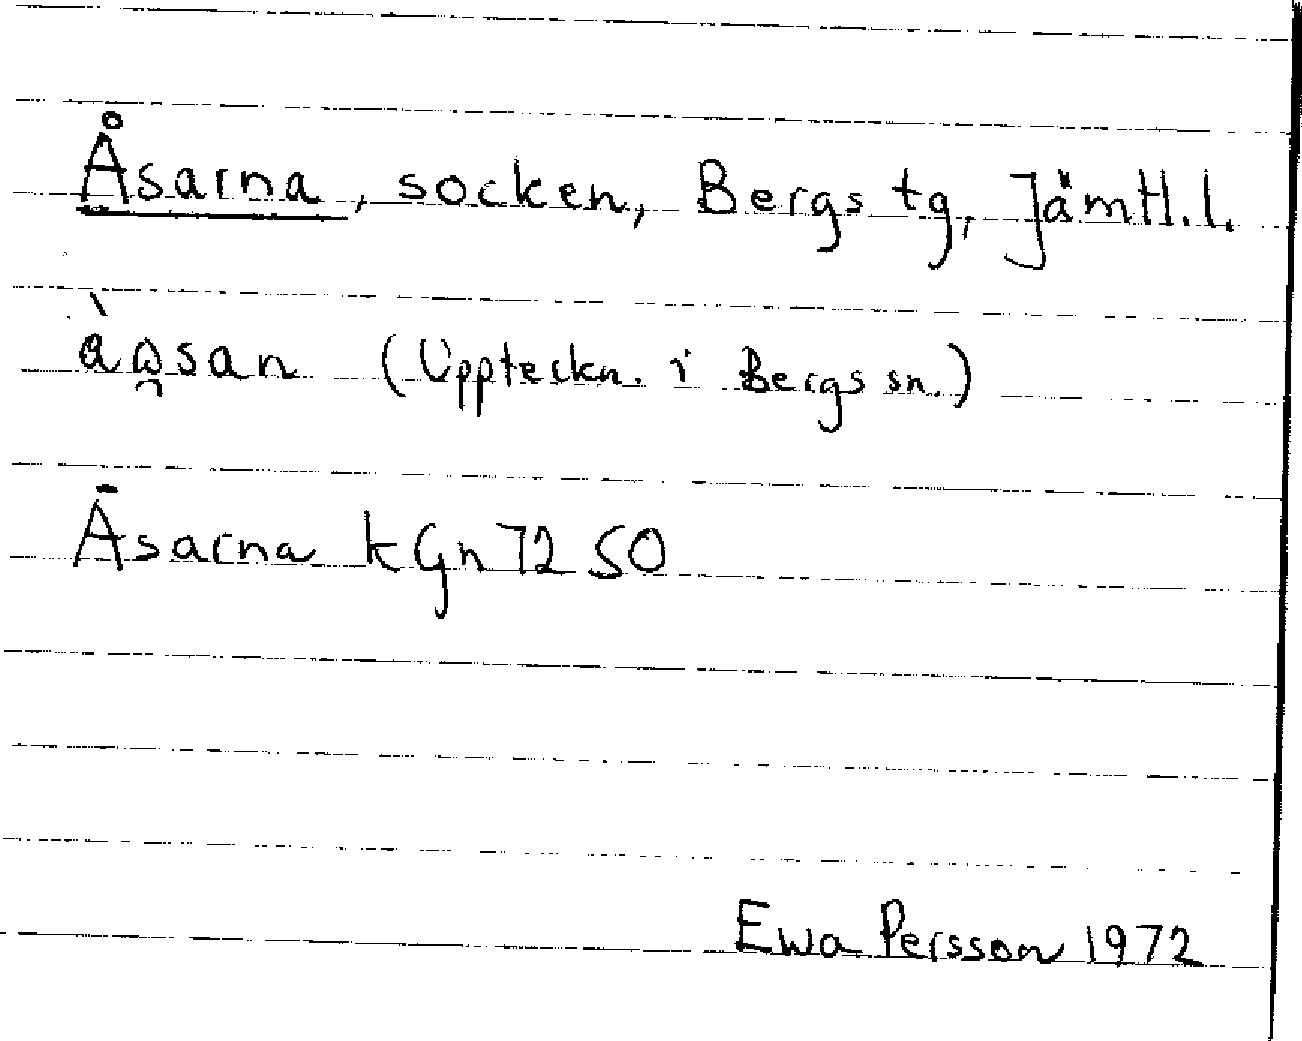 Åsarna, socken, Bergs tg, Jämtl.l.
(Uppteckn. i Bergs sn.)
Åsarna kGn 72 SO
Ewa Persson 1972